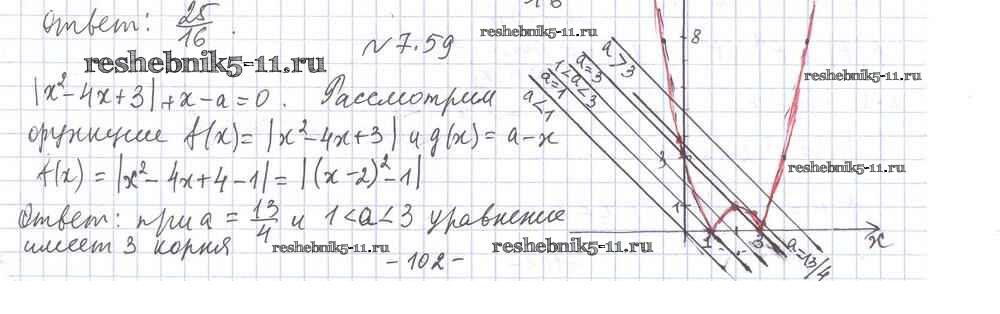 Ответ: 25/16.
16
N 7.59
reshebnik5-11.ru
reshebnik5-11.ru
|x²-4x+3|+x-a=0. Рассмотрим
функцие f(x)=|x²-4x+3| и g(x)=a-x
f(x)=|x²-4x+4-1|=|(x-2)²-1|
Ответ: при a=13/4 и 1<a<3 уравнение
имеет 3 корня
reshebnik5-11.ru
reshebnik5-11.ru
-102-
8
a>3
a=3
1<a<3
a=1
a<1
reshebnik5-11.ru
reshebnik5-11.ru
3
1
1
3
x
a=13/4